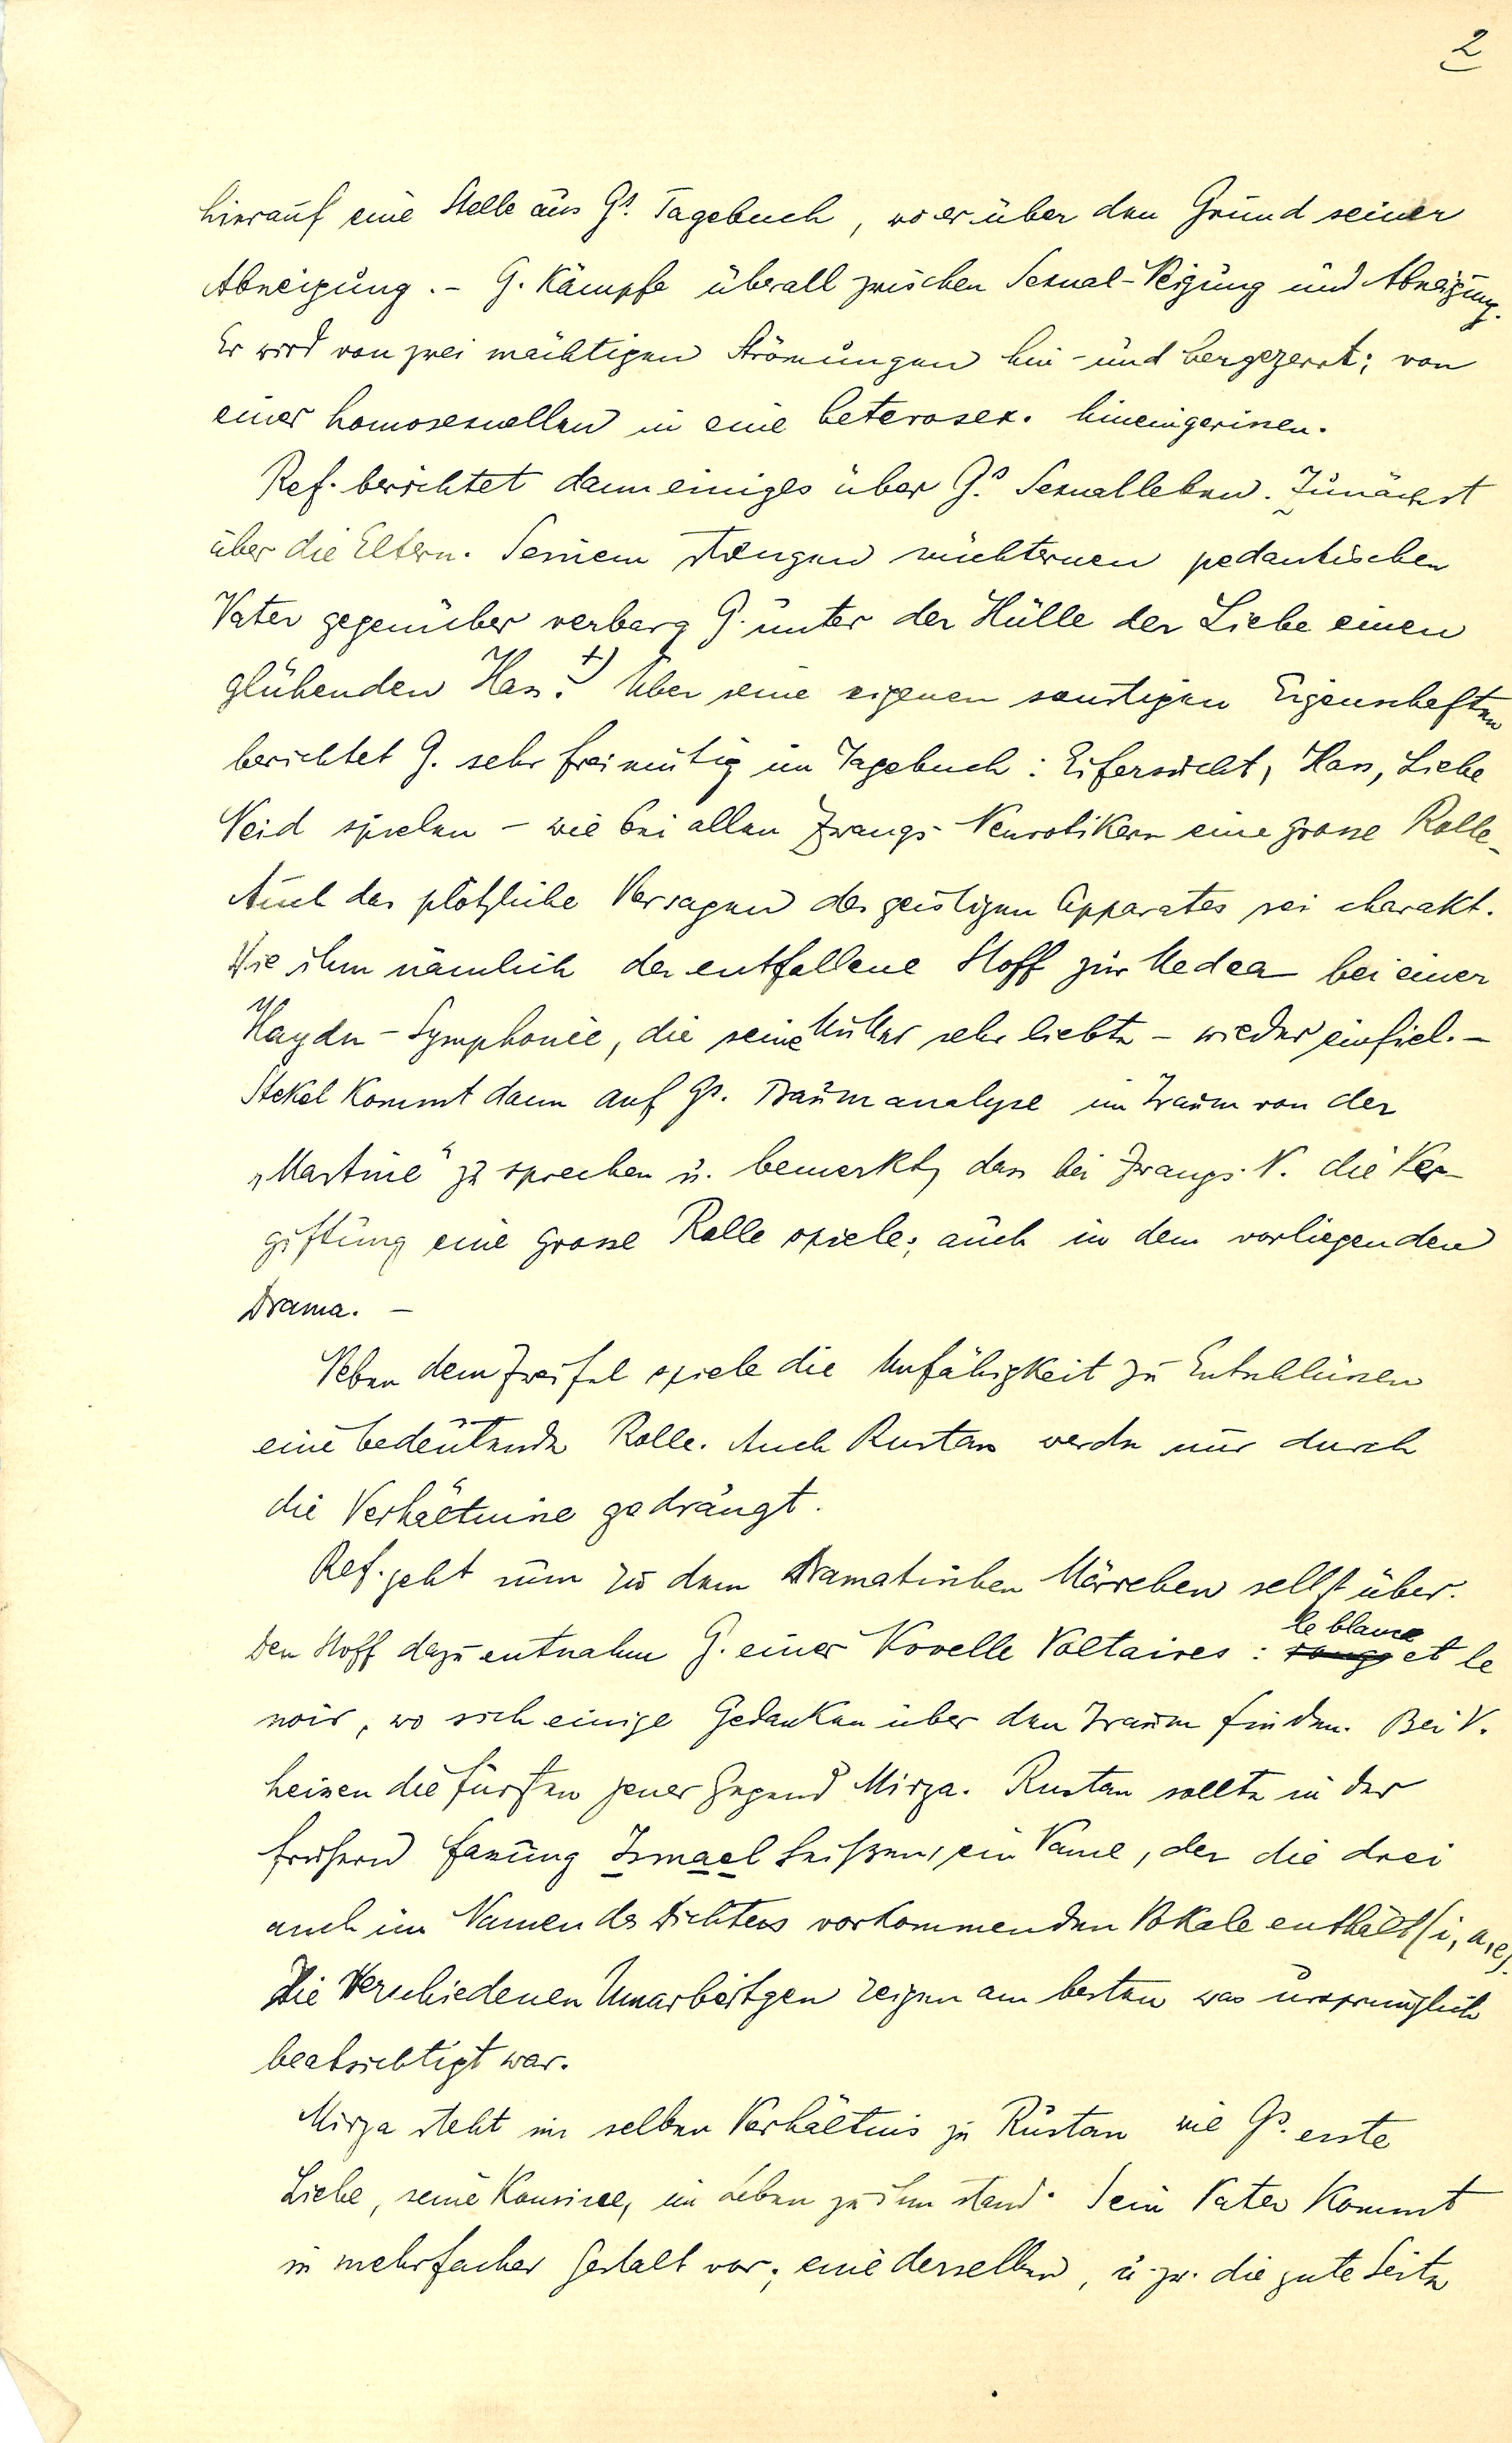 2
hierauf eine Stelle aus Gs. Tagebuch, wo er über den Grund seiner
Abneigung. – G. kämpfe überall zwischen Sexual-Neigung und Abneigung.
Er wird von zwei mächtigen Strömungen hin- und hergezerrt; von
einer homosexuellen in eine heterosex. hineingerissen.
Ref. berichtet dann einiges über G.s Sexualleben. Zunächst
über die Eltern. Seinem strengen nüchternen pedantischen
Vater gegenüber verbarg G. unter der Hülle der Liebe einen
glühenden Hass. +) Über seine eigenen sonstigen Eigenschaften
berichtet G. sehr freimütig im Tagebuch: Eifersucht, Hass, Liebe
Neid spielen – wie bei allen Zwangs-Neurotikern eine grosse Rolle.
Auch das plötzliche Versagen des geistigen Apparates sei charakt.
Wie ihm nämlich der entfallene Stoff zur Medea bei einer
Haydn-Symphonie, die seine Mutter sehr liebte – wieder einfiel. –
Stekel kommt dann auf Gs. Traumanalyse im Traum von der
„Martine“ zu sprechen u. bemerkt, dass bei Zwangs-N. die Ver-
giftung eine grosse Rolle spiele; auch in dem vorliegenden
Drama. –
Neben dem Zweifel spiele die Unfähigkeit zu Entschlüssen
eine bedeutende Rolle. Auch Rustan werde nur durch
die Verhältnisse gedrängt.
Ref. geht nun zu dem Dramatischen Märchen selbst über.
Den Stoff dazu entnahm G. einer Novelle Voltaires: le blanc et le
noir, wo sich einige Gedanken über den Traum finden. Bei V.
heissen die Fürsten jener Gegend Mirza. Rustan sollte in der
frühern Fassung Ismael heißen, ein Name, der die drei
auch im Namen des Dichters vorkommenden Vokale enthält (i, a, e).
Die Verschiedenen Umarbeitgen zeigen am besten was ursprünglich
beabsichtigt war.
Mirza steht im selben Verhältnis zu Rustan wie Gs. erste
Liebe, seine Kousine, im Leben zu ihm stand. Sein Vater kommt
in mehrfacher Gestalt vor; eine derselben, u. zw. die gute Seite